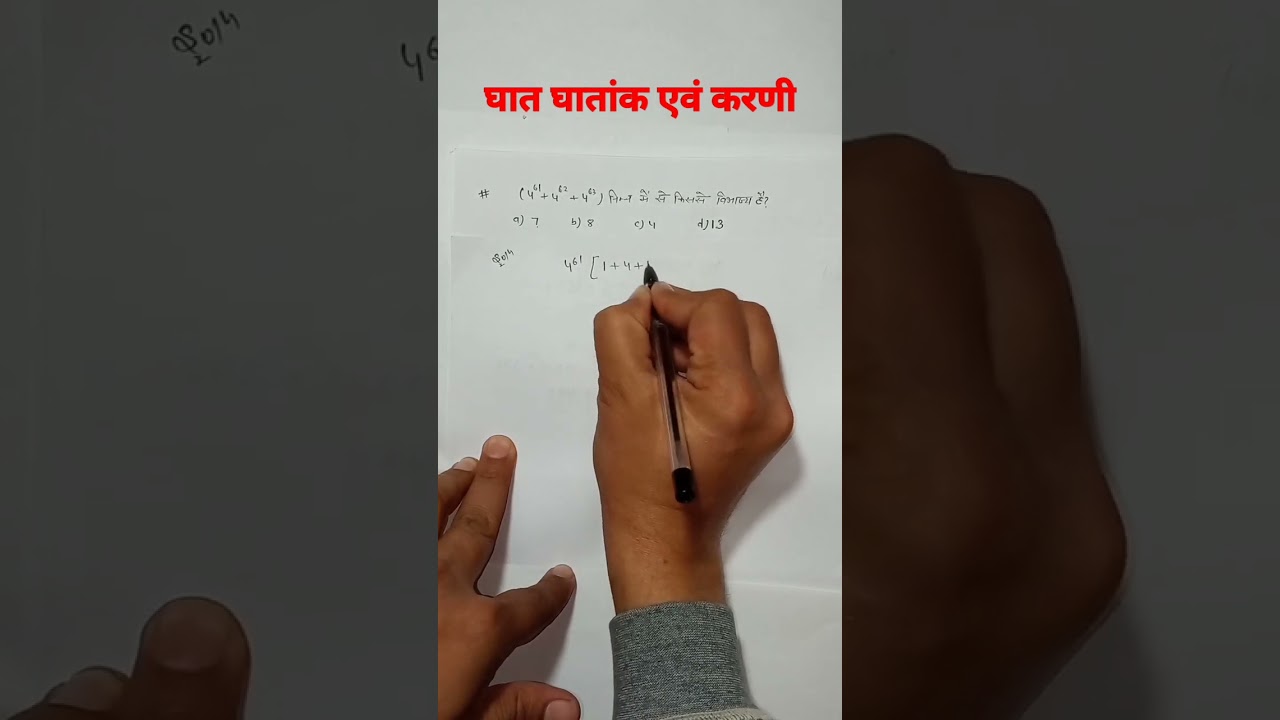 घात घातांक एवं करणी
# (4^61 + 4^62 + 4^63) निम्न में से किससे विभाज्य है?
a) 7 b) 8 c) 4 d) 13
4^61 [1 + 4 +
4